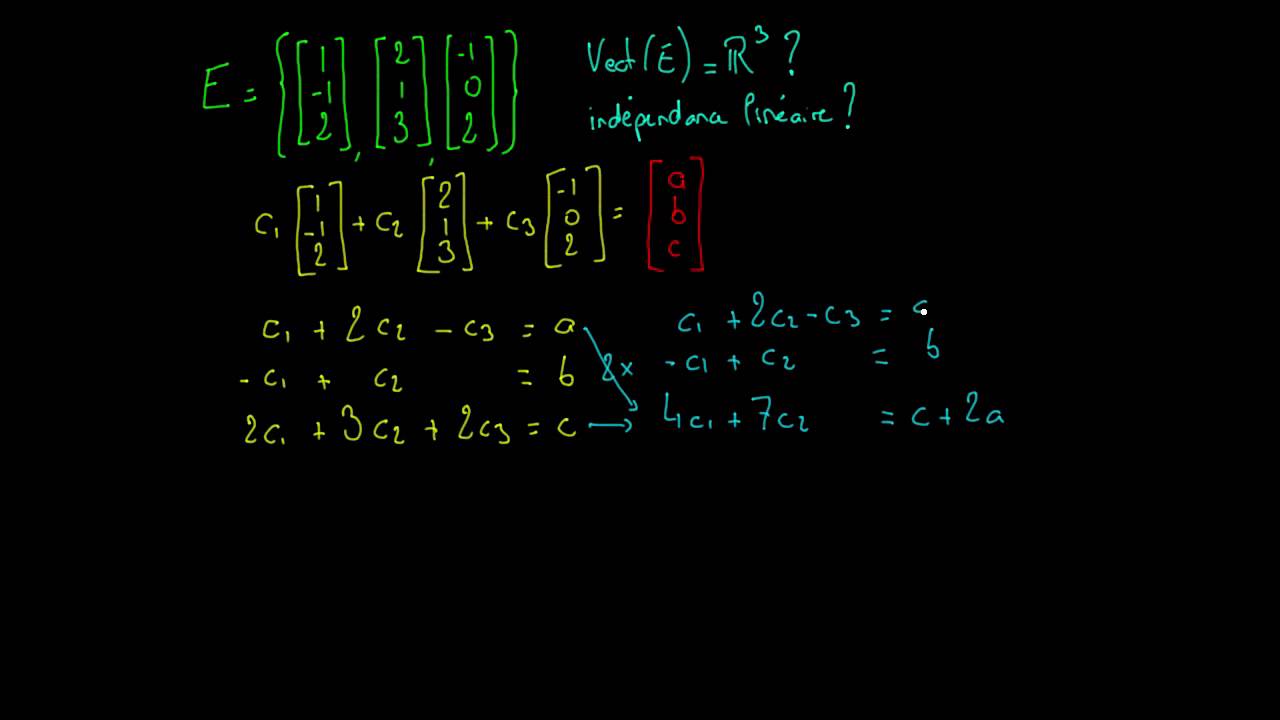 E = { [1 -1 2], [2 1 3], [-1 0 2] }
Vect(E) = ℝ³ ?
indépendana linéaire ?
c₁ [1 -1 2] + c₂ [2 1 3] + c₃ [-1 0 2] = [a b c]
c₁ + 2c₂ - c₃ = a
-c₁ + c₂ = b
2c₁ + 3c₂ + 2c₃ = c
2x
c₁ + 2c₂ - c₃ =
-c₁ + c₂ = b
4c₁ + 7c₂ = c + 2a